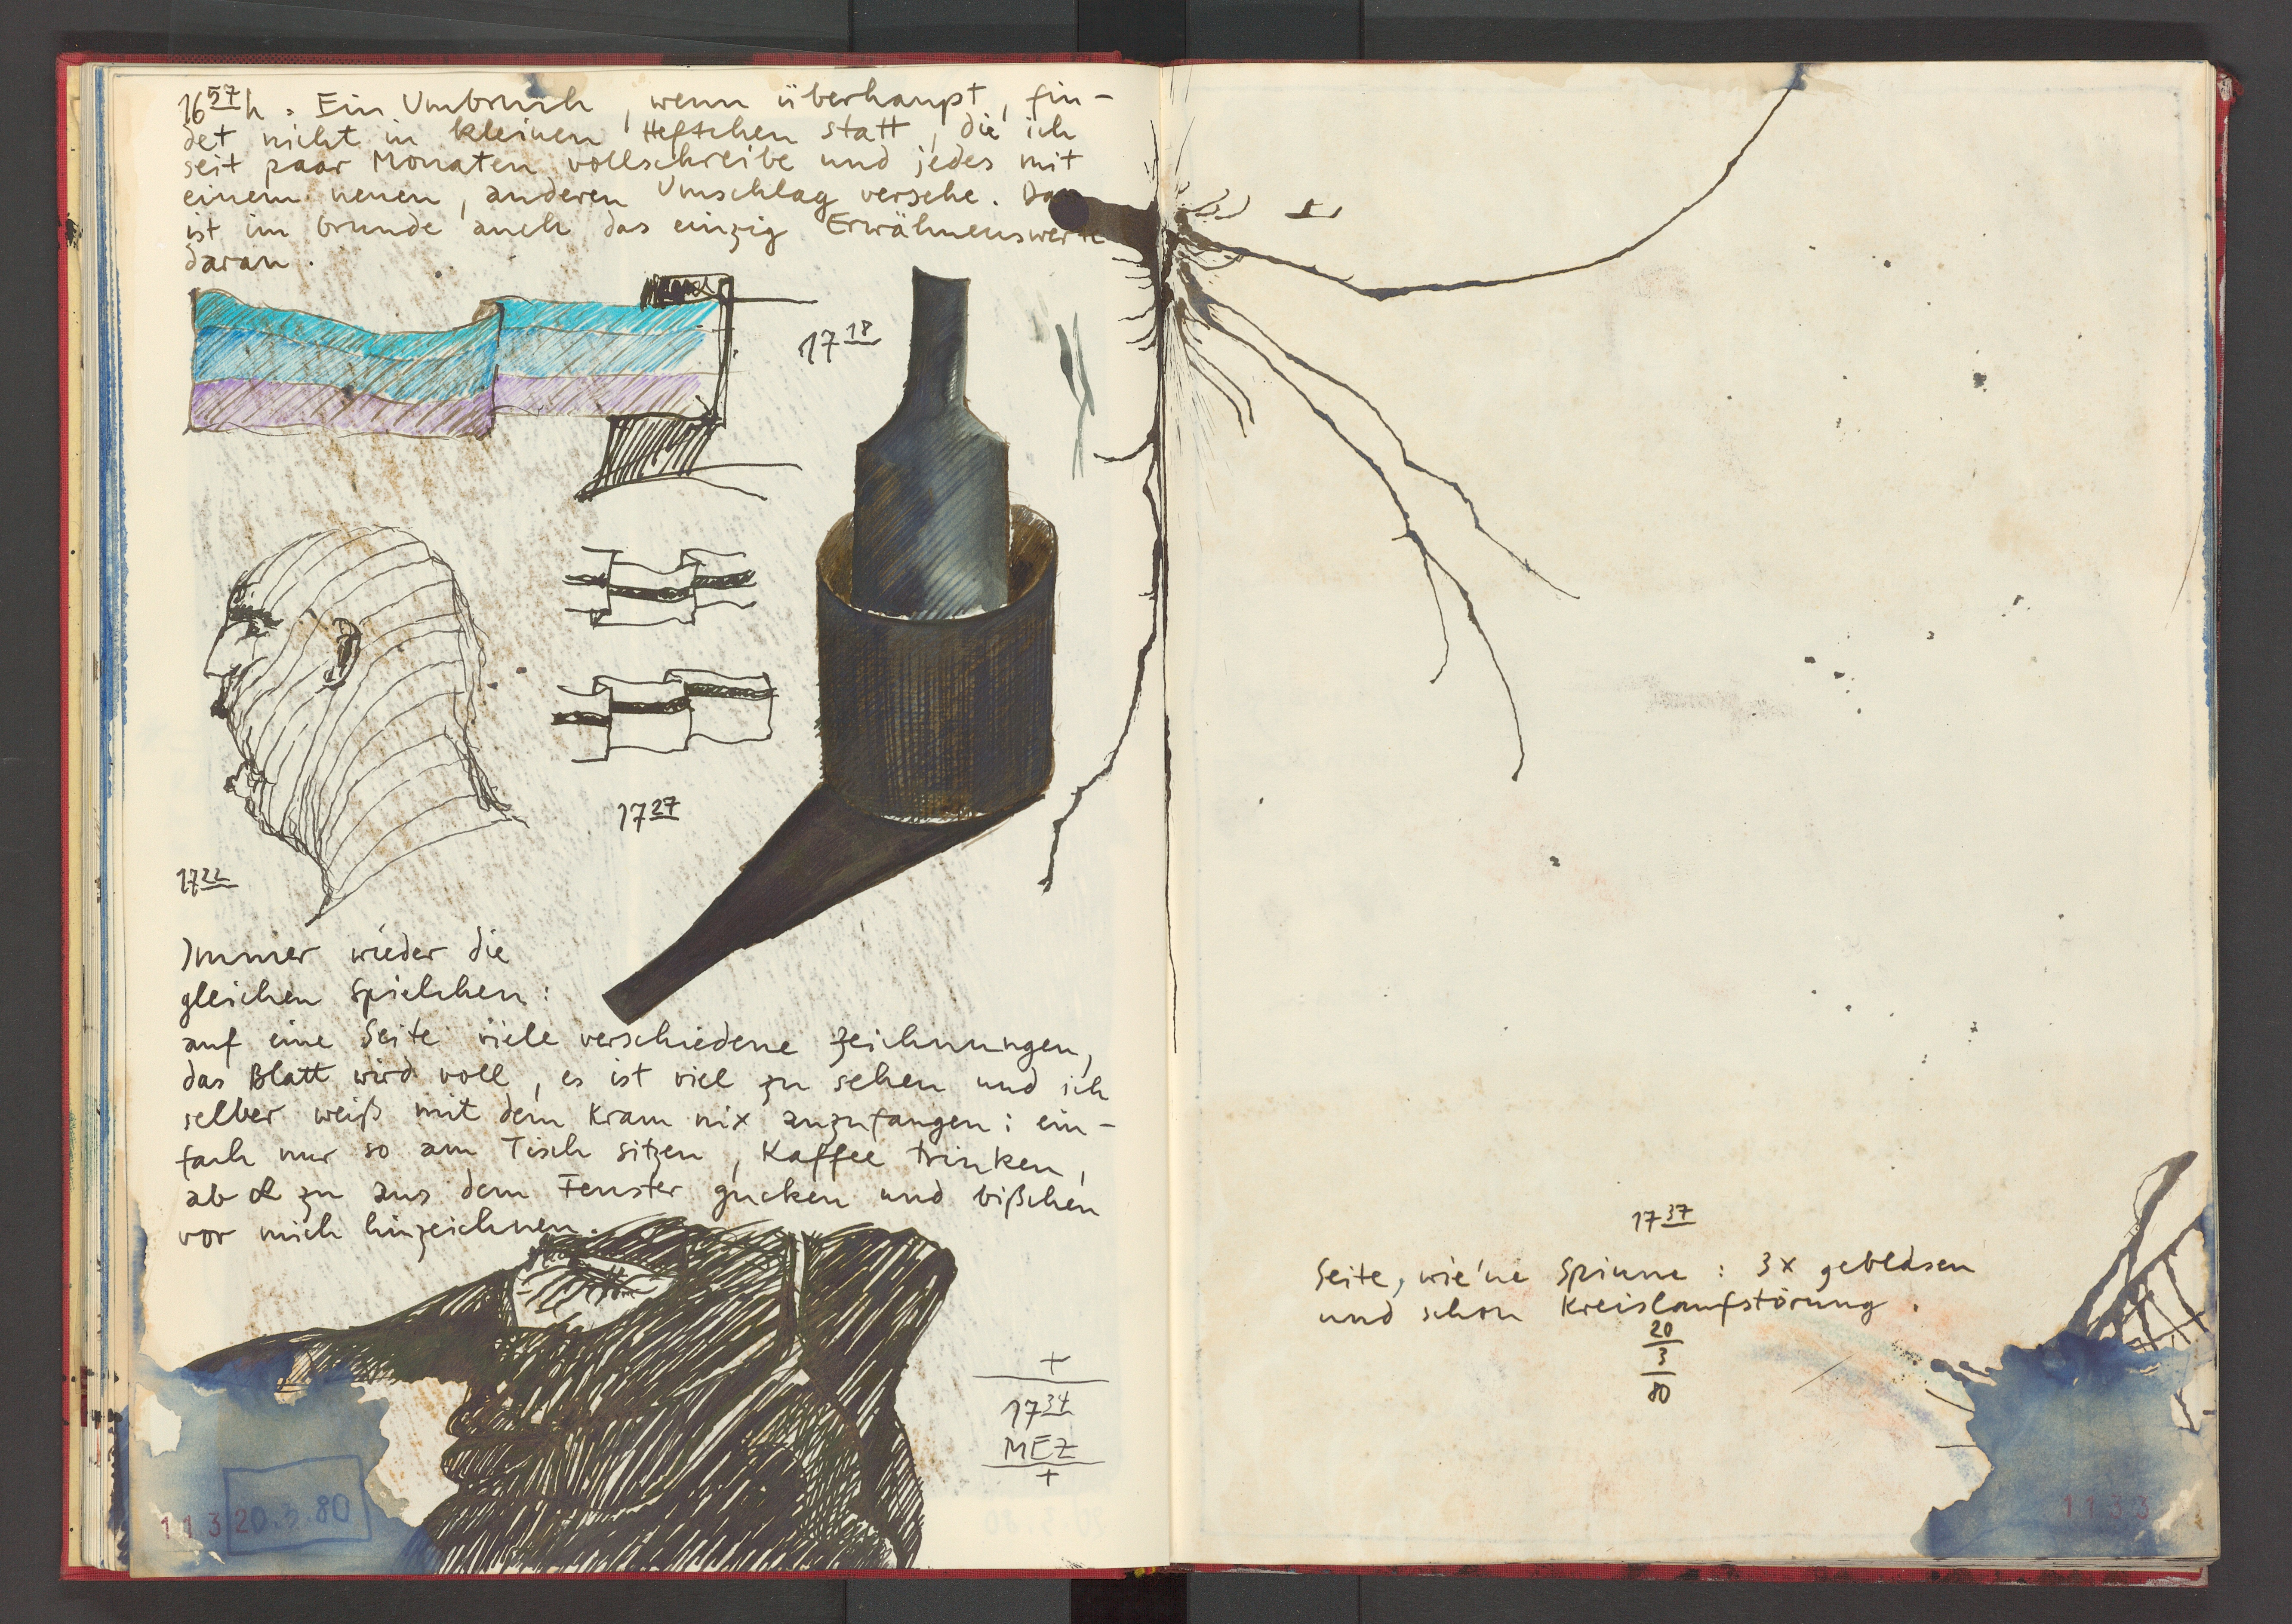 16 57 h. Ein Umbruch, wenn überhaupt, fin-
det nicht in kleinen Heftchen statt, die ich
seit paar Monaten vollschreibe und jedes mit
einem neuen, anderen Umschlag versehe. Das
ist im Grunde auch das einzig Erwähnenswerte
daran.
17 18
17 27
17 22
Immer wieder die
gleichen Spielchen:
auf eine Seite viele verschiedene Zeichnungen,
das Blatt wird voll, es ist viel zu sehen und ich
selber weiß mit dem Kram nix anzufangen: ein-
fach nur so am Tisch sitzen, Kaffee trinken,
ab & zu aus dem Fenster gucken und bißchen
vor mich hinzeichnen.
+
17 34
MEZ
+
20.3.80
1132
17 37
Seite, wie'ne Spinne: 3x geblasen
und schon Kreislaufstörung.
20
3
80
1133